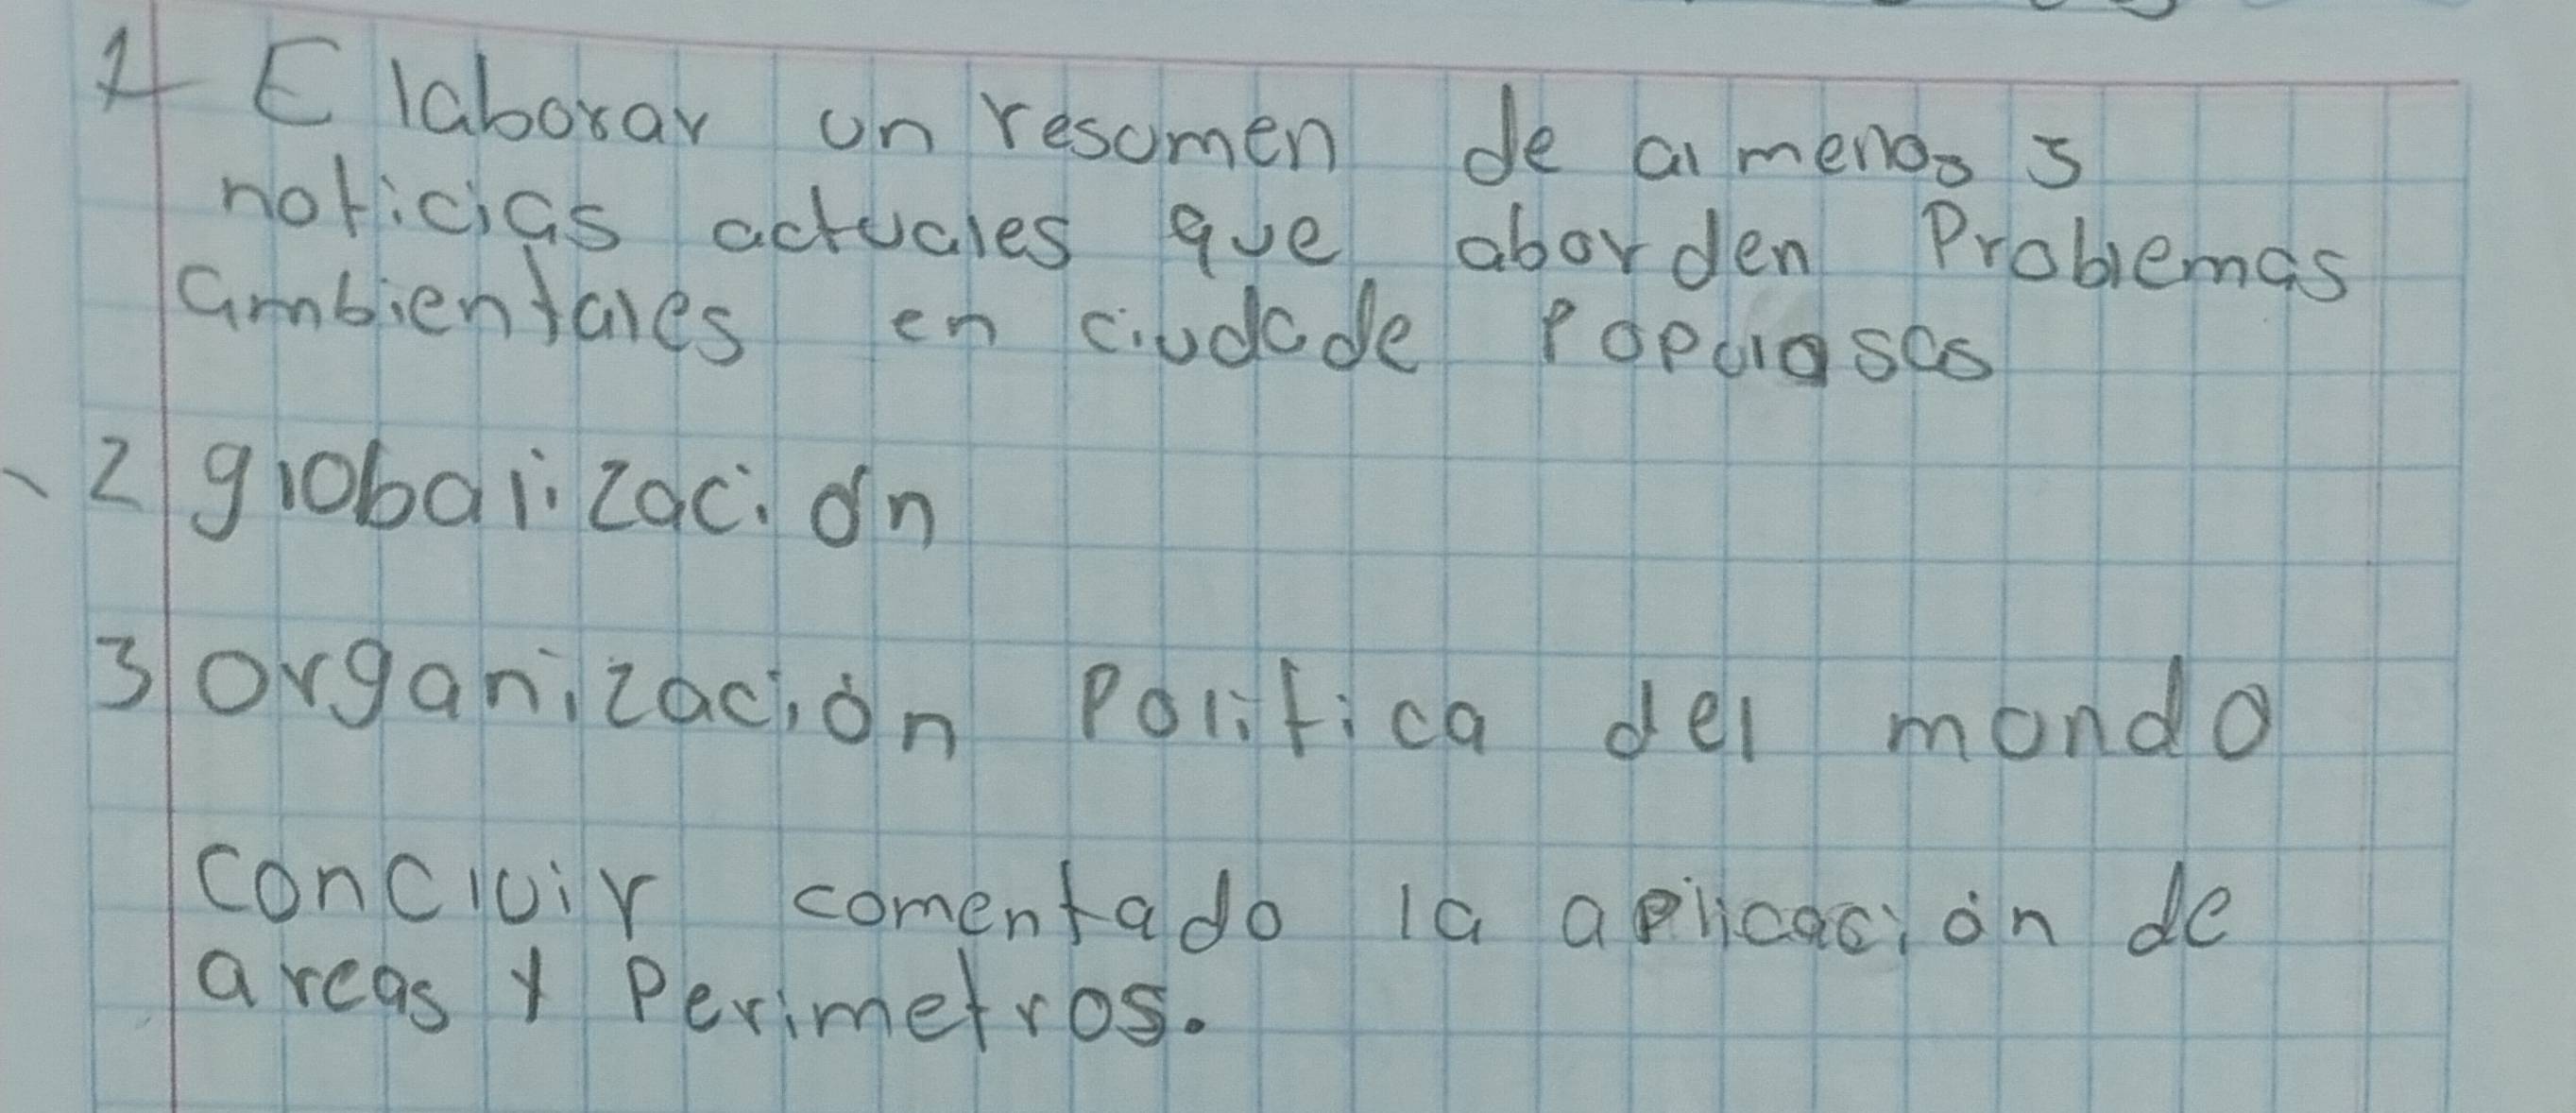 1 Elaborar un resumen de al menos 5
noticias actuales que aborden Problemas
ambientales en ciudade Populosas
2 globalización
3 organización Politica del mundo
concluir comentado la aplicación de
areas y Perimetros.